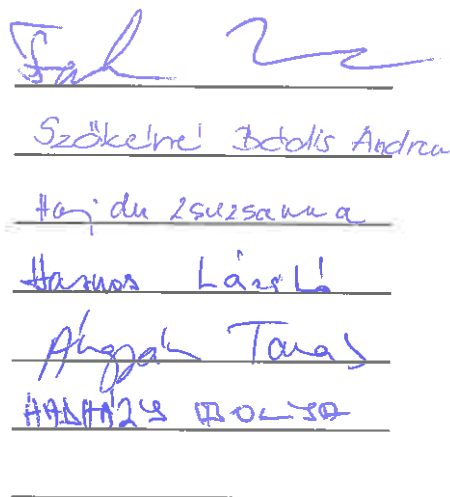 Szőkéné Bódis Andrea
Hajdu Zsuzsanna
Hasznos László
Árgyán Tamás
HADHÁZY IBOLYA